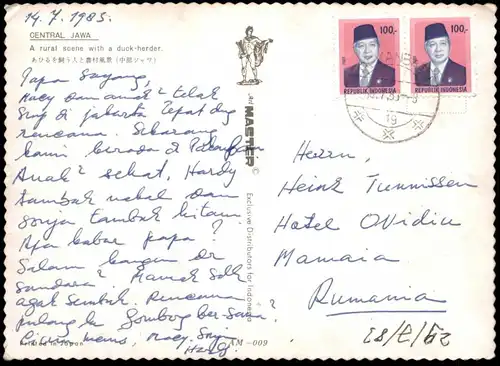 14.7.1983.
CENTRAL JAWA
A rural scene with a duck-herder.
あひるを飼う人と農村風景（中部ジャワ）
Papa Sayang,
Macy dan anak² telah
tiba di Jakarta tepat dng
rencana. Sekarang
kami berada di
Anak² sehat, Hardy
tambah nakal dan
sonja tambah hitam.
Apa kabar papa?
Salam bangun dr
saudara² Mamah
agak sembuh. Rencana
pulang ke Somborg ber-sama.
mems, Macy, Sonja
Hardy
Printed in Japan
AM-009
art MASTER ©
Exclusive Distributors for Indonesia
100,-
REPUBLIK INDONESIA
100,-
REPUBLIK INDONESIA
19
Herrn,
Heinz Tunnissen
Hotel Ovidiu
Mamaia
Rumania
29/7/83